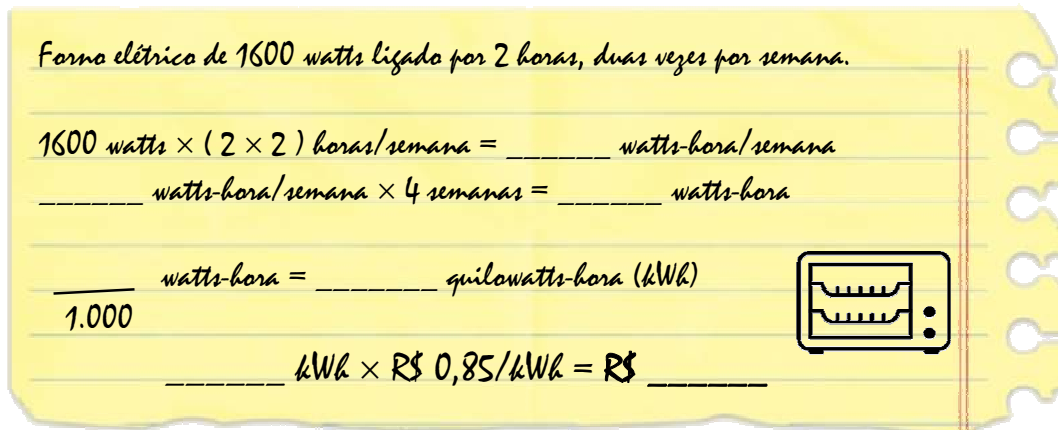 Forno elétrico de 1600 watts ligado por 2 horas, duas vezes por semana.
1600 watts × ( 2 × 2 ) horas/semana = ______ watts-hora/semana
______ watts-hora/semana × 4 semanas = ______ watts-hora
______ watts-hora = _______ quilowatts-hora (kWh)
1.000
______ kWh × R$ 0,85/kWh = R$ ______